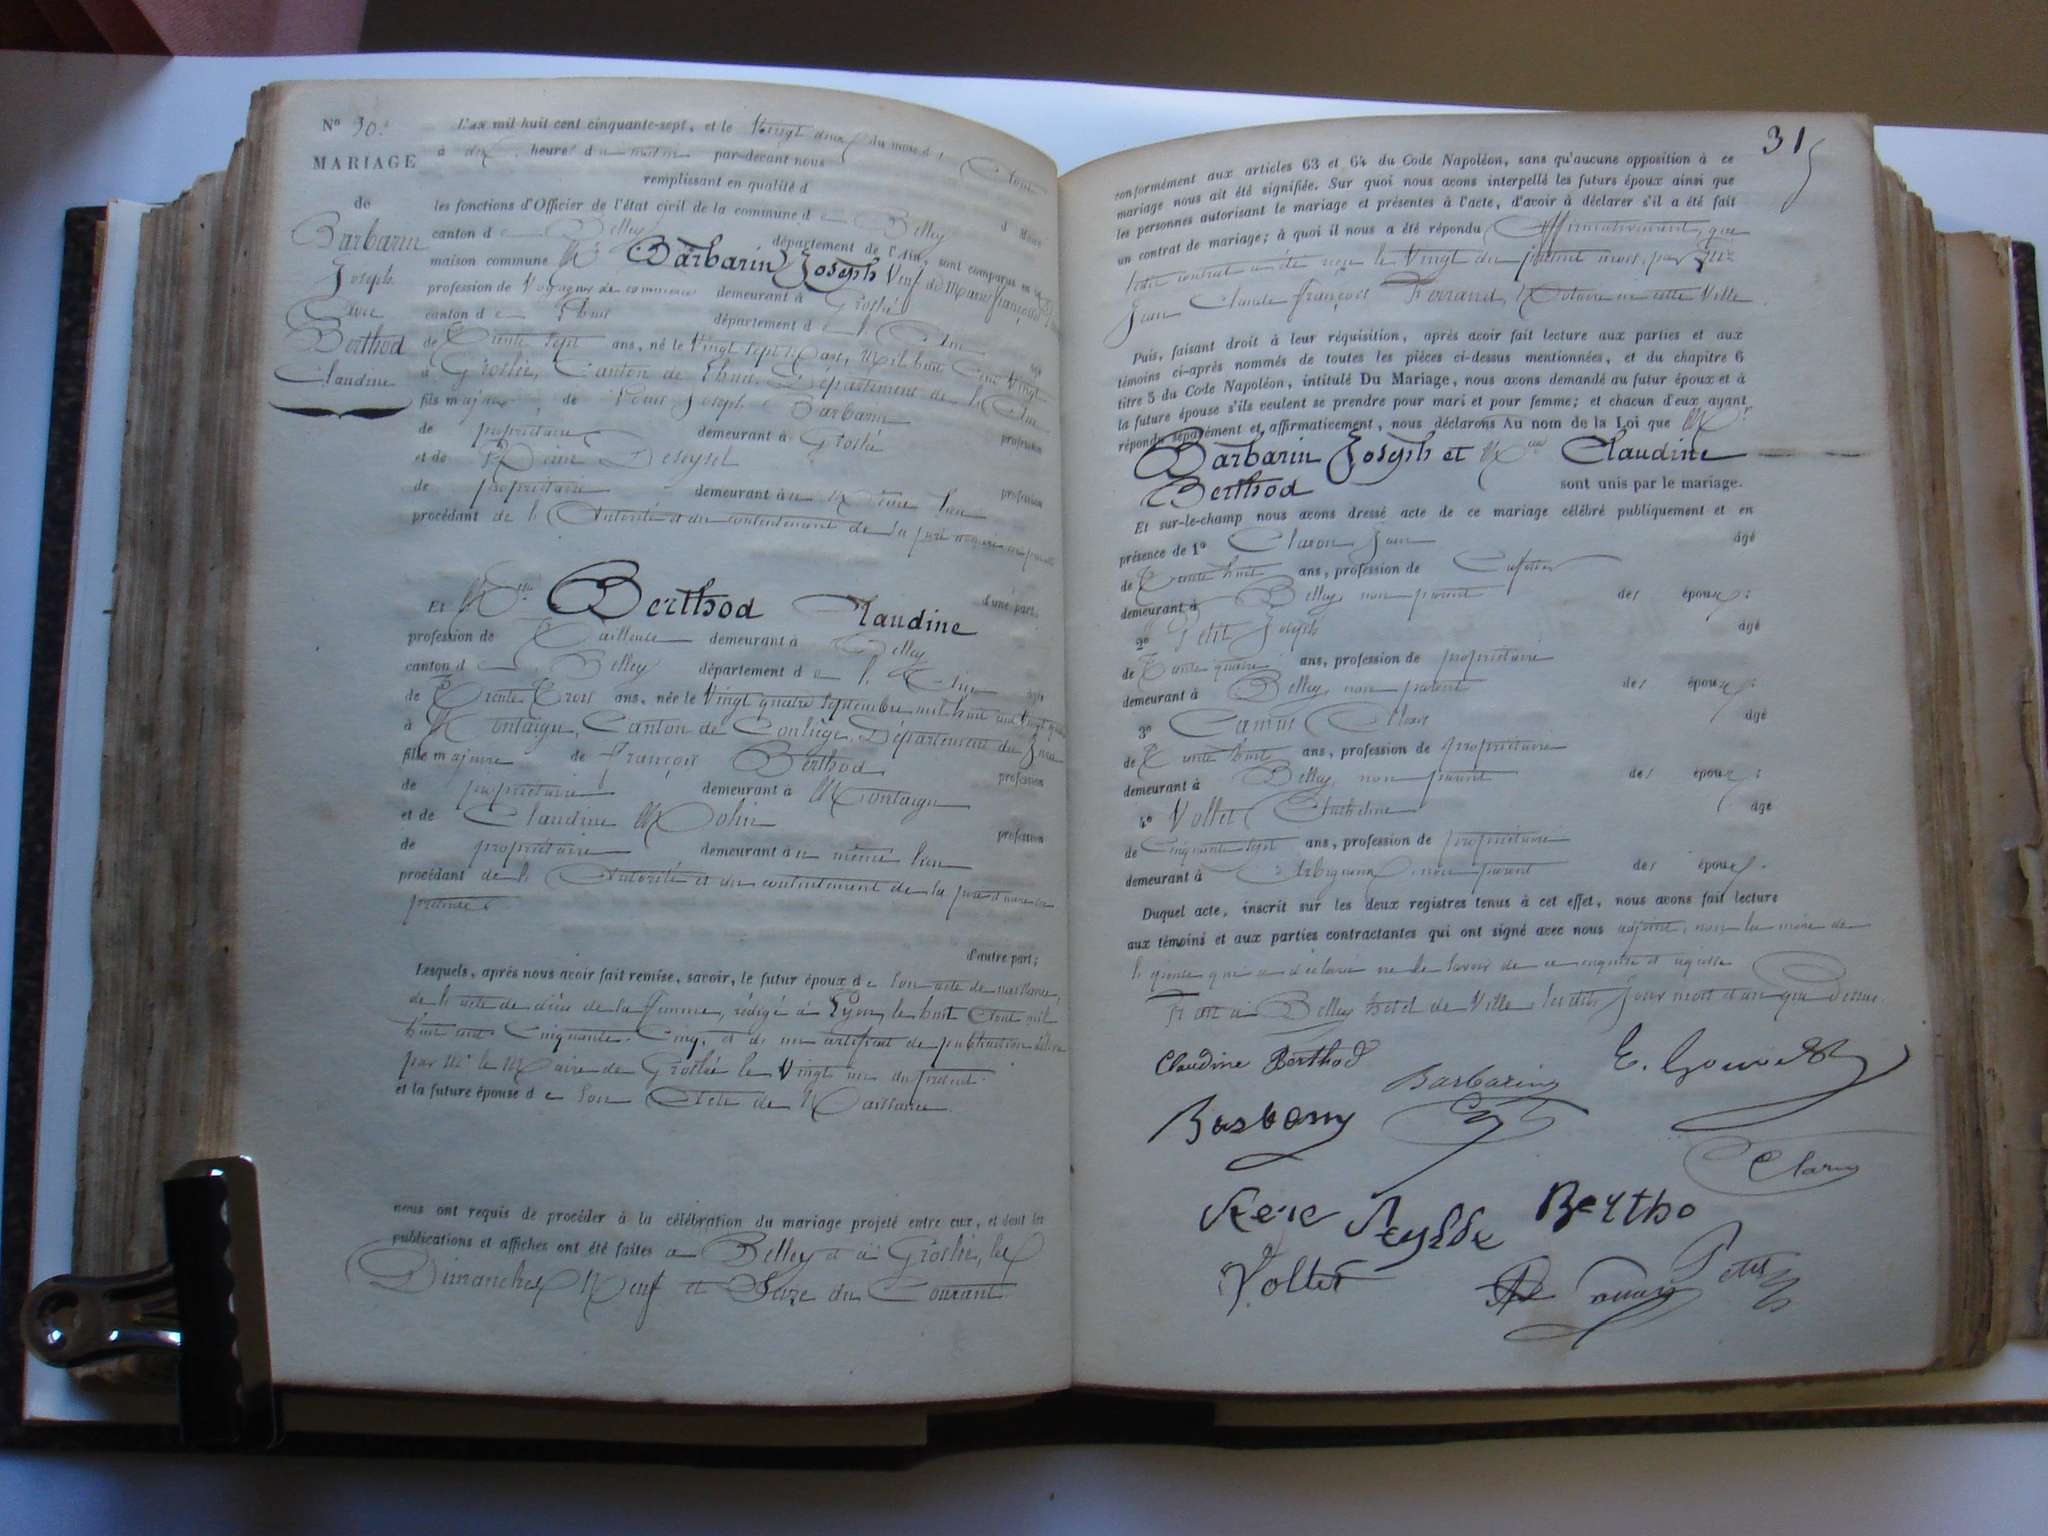 N° 30.
MARIAGE
de
Barbarin
Joseph
avec
Berthod
Claudine
L'an mil huit cent cinquante-sept, et le Vingt deux du mois d'Août
à dix heures du matin par-devant nous
remplissant en qualité d
les fonctions d'Officier de l'état civil de la commune de Belley
canton de Belley département de l'Ain, sont comparus en la
maison commune Mr Barbarin Joseph Veuf de Marie françoise
profession de Voyageur de commerce demeurant à Groslée
canton de Lhuis département de l'Ain âgé
de Trente Sept ans, né le Vingt sept Mars, Mil huit Cent Vingt
à Groslée, Canton de Lhuis, Département de l'Ain
fils majeur de Joseph Barbarin profession
de propriétaire demeurant à Groslée
et de profession
de propriétaire demeurant au même lieu
procédant de l'Autorité et du consentement de
d'une part;
Et Mlle Berthod Claudine
profession de Tailleuse demeurant à Belley
canton de Belley département de l'Ain âgée
de Trente Trois ans, née le Vingt quatre Septembre mil huit cent Vingt quatre
à Montaigu, Canton de Conliège, Département du Jura
fille majeure de françois Berthod profession
de propriétaire demeurant à Montaigu
et de Claudine profession
de propriétaire demeurant au même lieu
procédant de l'Autorité et du consentement de
d'autre part;
Lesquels, après nous avoir fait remise, savoir, le futur époux de son acte de naissance,
de l'acte de décès de sa femme, rédigé à Lyon, le huit Août mil
huit cent Cinquante-Cinq, et d'un certificat de publication délivré
par Mr le Maire de Groslée le Vingt un du présent
et la future épouse de son Acte de Naissance
nous ont requis de procéder à la célébration du mariage projeté entre eux, et dont les
publications et affiches ont été faites à Belley et à Groslée, les
Dimanches Neuf et Seize du Courant
31
conformément aux articles 63 et 64 du Code Napoléon, sans qu'aucune opposition à ce
mariage nous ait été signifiée. Sur quoi nous avons interpellé les futurs époux ainsi que
les personnes autorisant le mariage et présentes à l'acte, d'avoir à déclarer s'il a été fait
un contrat de mariage; à quoi il nous a été répondu Affirmativement, que
ledit contrat a été reçu le Vingt du présent mois, par Me
Jean Claude françois Ferrand, Notaire en cette Ville
Puis, faisant droit à leur réquisition, après avoir fait lecture aux parties et aux
témoins ci-après nommés de toutes les pièces ci-dessus mentionnées, et du chapitre 6
titre 5 du Code Napoléon, intitulé Du Mariage, nous avons demandé au futur époux et à
la future épouse s'ils veulent se prendre pour mari et pour femme; et chacun d'eux ayant
répondu séparément et affirmativement, nous déclarons Au nom de la Loi que Mr
Barbarin Joseph et Mlle Claudine
Berthod sont unis par le mariage.
Et sur-le-champ nous avons dressé acte de ce mariage célébré publiquement et en
présence de 1° Claron Jean âgé
de Trente huit ans, profession de Cafetier
demeurant à Belley, non parent des époux;
2° Petit Joseph âgé
de Trente quatre ans, profession de propriétaire
demeurant à Belley, non parent des époux;
3° Camus âgé
de Trente huit ans, profession de propriétaire
demeurant à Belley, non parent des époux;
4° Vollet Anthelme âgé
de Cinquante Sept ans, profession de propriétaire
demeurant à Arbignieu, non parent des époux.
Duquel acte, inscrit sur les deux registres tenus à cet effet, nous avons fait lecture
aux témoins et aux parties contractantes qui ont signé avec nous adjoint, non la mère de
l'épouse qui a déclaré ne le savoir de ce enquise et requise
Fait à Belley hotel de Ville, lesdits Jour mois et an que Dessus.
Claudine Berthod
Barbarin
Barbarin
Claron
Bertho
Vollet
Petit